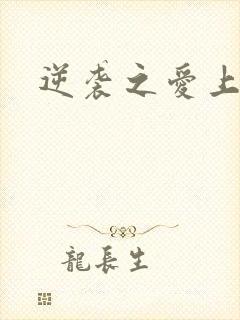 逆袭之爱上
龍長生